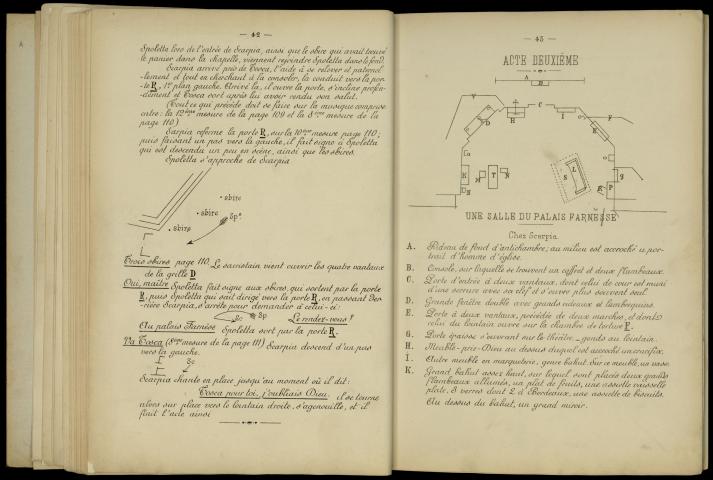 — 42 —
Spoletta lors de l'entrée de Scarpia, ainsi que le sbire qui avait trouvé
le panier dans la chapelle, viennent rejoindre Spoletta dans le fond.
Scarpia arrivé près de Tosca, l'aide à se relever et paternel-
-lement et tout en cherchant à la consoler, la conduit vers la por-
-te R, 1er plan gauche. Arrivé là, il ouvre la porte, s'incline profon-
-dément et Tosca sort après lui avoir rendu son salut.
(Tout ce qui précède doit se faire sur la musique comprise
entre: la 12ème mesure de la page 109 et la 8ème mesure de la
page 110.)
Scarpia referme la porte R, sur la 10ème mesure page 110;
puis faisant un pas vers la gauche, il fait signe à Spoletta
qui est descendu un peu en scène, ainsi que les sbires.
Spoletta s'approche de Scarpia
sbire
sbire
Spa
sbire
Trois sbires page 110. Le sacristain vient ouvrir les quatre vantaux
de la grille D
Oui, maître Spoletta fait signe aux sbires, qui sortent par la porte
R, puis Spoletta qui s'est dirigé vers la porte R, en passant der-
-rière Scarpia, s'arrête pour demander à celui-ci:
Sc
Sp
Le rendez-vous?
Au palais Farnèse Spoletta sort par la porte R.
Va Tosca (8ème mesure de la page 111) Scarpia descend d'un pas
vers la gauche.
Sc
Scarpia chante en place, jusqu'au moment où il dit:
Tosca pour toi, j'oubliais Dieu, il se tourne
alors sur place vers le lointain droite, s'agenouille, et il
finit l'acte ainsi
— 43 —
ACTE DEUXIÈME
A
B
V
C
D
H
I
E
F
K
M
T
N
S
L
P
g
UNE SALLE DU PALAIS FARNÈSE
Chez Scarpia
A. Rideau de fond d'antichambre; au milieu est accroché u por-
trait d'homme d'église.
B. Console, sur laquelle se trouvent un coffret et deux flambeaux.
C. Porte d'entrée à deux vantaux, dont celui de cour est muni
d'une serrure avec sa clef et s'ouvre plus souvent seul.
D. Grande fenêtre double avec grands rideaux et lambrequins.
E. Porte à deux vantaux, précédée de deux marches, et dont
celui du lointain ouvre sur la chambre de torture F.
G. Porte épaisse s'ouvrant sur le théâtre _ gonds au lointain.
H. Meuble-prie-Dieu au dessus duquel est accroché un crucifix.
I. Autre meuble en marqueterie, genre bahut. Sur ce meuble, un vase.
K. Grand bahut assez haut, sur lequel sont placés deux grands
flambeaux allumés, un plat de fruits, une assiette vaisselle
plate, 3 verres dont 2 à Bordeaux, une assiette de biscuits.
Au dessus du bahut, un grand miroir.